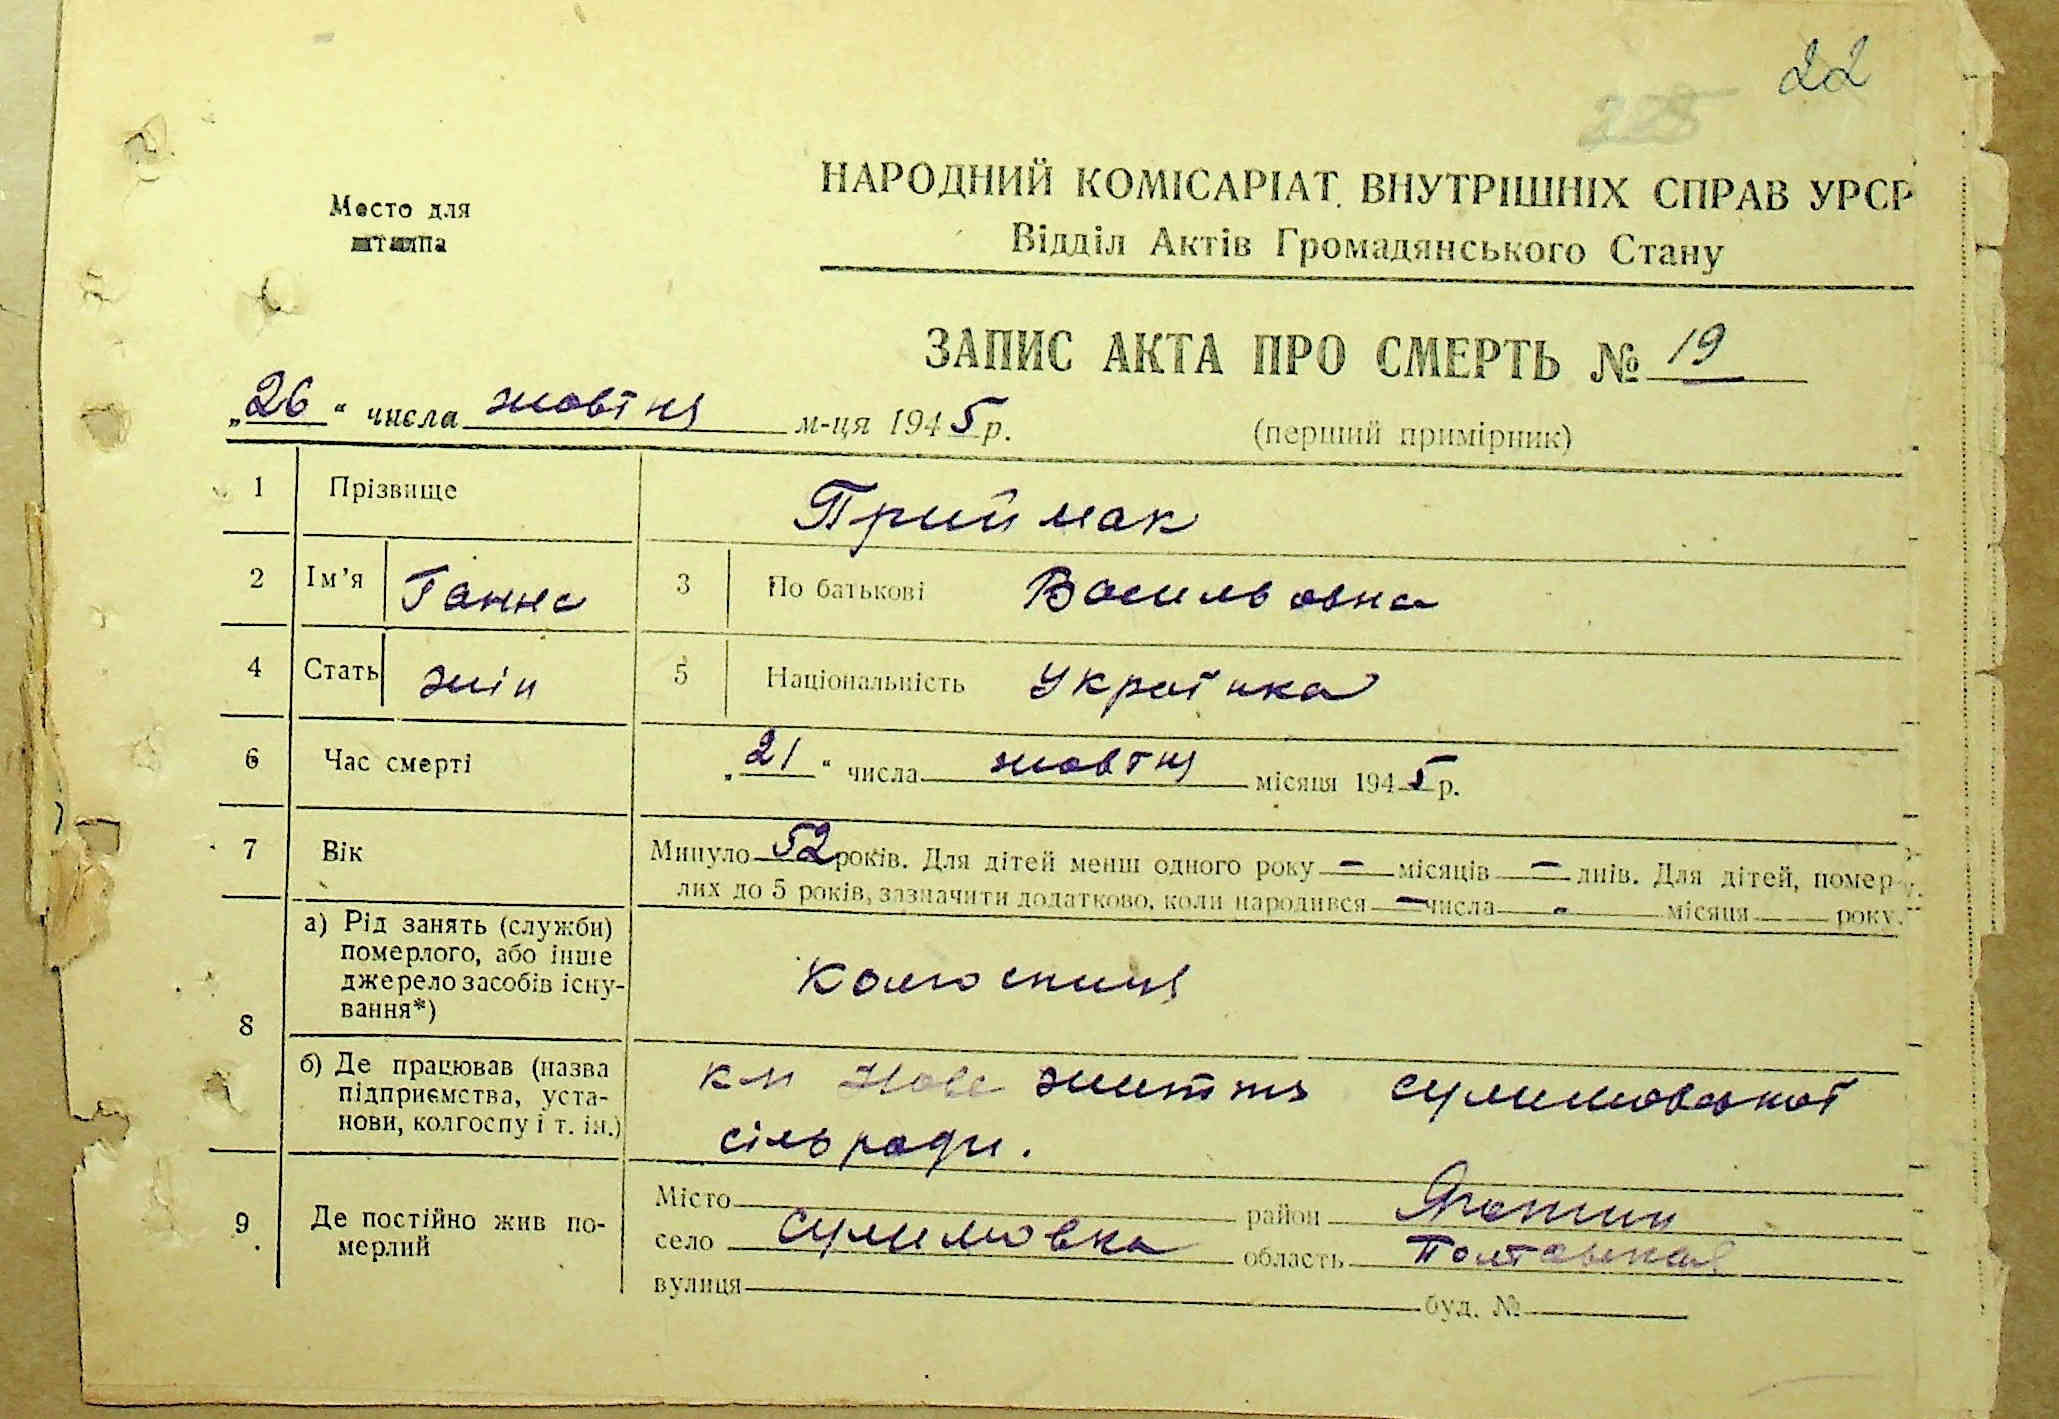 22
225
Место для
штампа
НАРОДНИЙ КОМІСАРІАТ ВНУТРІШНІХ СПРАВ УРСР
Відділ Актів Громадянського Стану
ЗАПИС АКТА ПРО СМЕРТЬ № 19
„26“ числа жовтня м-ця 1945 р.
(перший примірник)
1 Прізвище Приймак
2 Ім’я Ганна 3 По батькові Васильовна
4 Стать жін 5 Національність Українка
6 Час смерті „21“ числа жовтня місяця 1945 р.
7 Вік Минуло 52 років. Для дітей менш одного року — місяців — днів. Для дітей, помер-
лих до 5 років, зазначити додатково, коли народився — числа - місяця року.
8 а) Рід занять (служби)
померлого, або інше
джерело засобів існу-
вання*)
колгоспниця
б) Де працював (назва
підприємства, уста-
нови, колгоспу і т. ін.)
к-п Нове життя сулимовської
сільради.
9 Де постійно жив по-
мерлий
Місто район Яготин
село сулимовка область Полтавська
вулиця буд. №